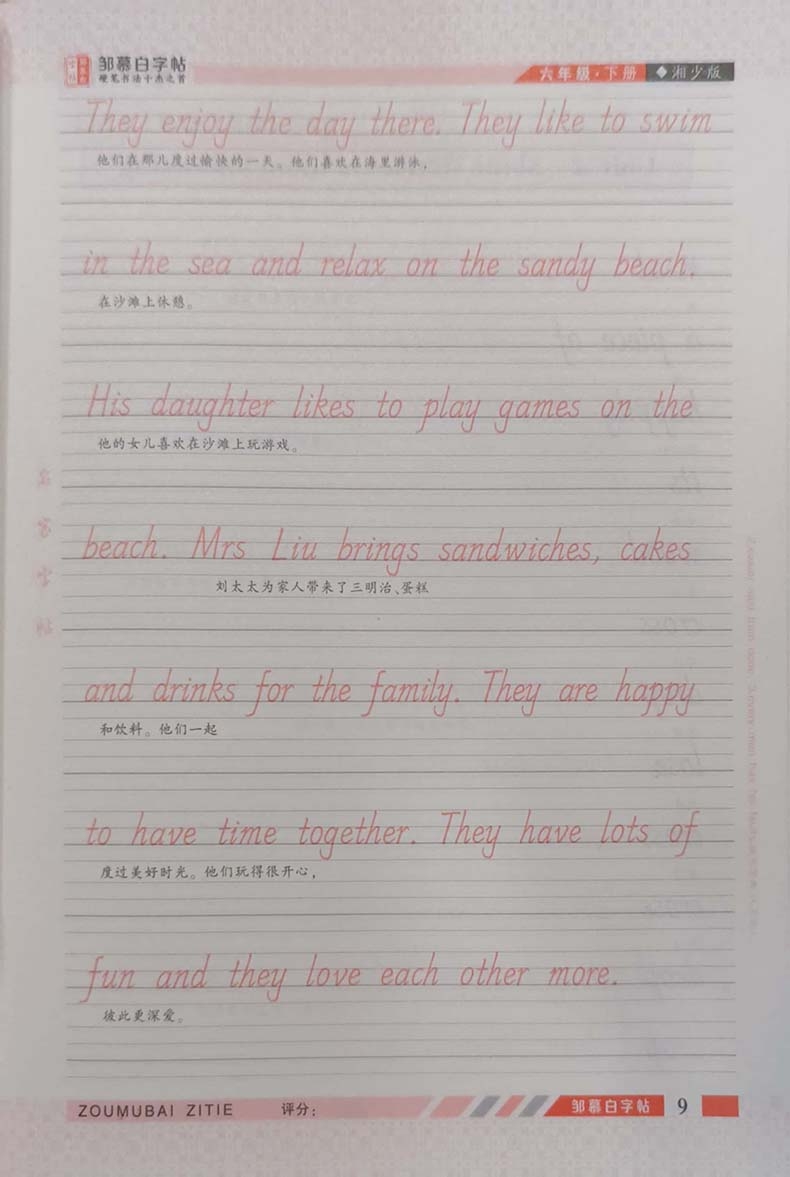 邹慕白字帖
硬笔书法十杰之首
六年级·下册 ◆湘少版
They enjoy the day there. They like to swim
他们在那儿度过愉快的一天。他们喜欢在海里游泳，
in the sea and relax on the sandy beach.
在沙滩上休憩。
His daughter likes to play games on the
他的女儿喜欢在沙滩上玩游戏。
beach. Mrs Liu brings sandwiches, cakes
刘太太为家人带来了三明治、蛋糕
and drinks for the family. They are happy
和饮料。他们一起
to have time together. They have lots of
度过美好时光。他们玩得很开心，
fun and they love each other more.
彼此更深爱。
ZOUMUBAI ZITIE 评分： 邹慕白字帖 9